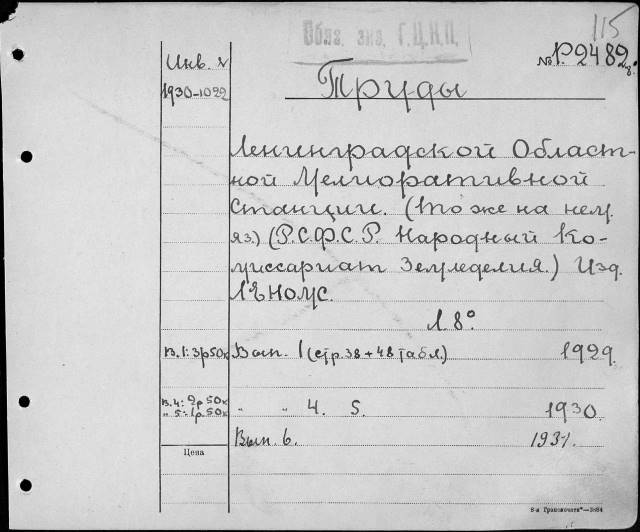 115
Обяз. экз. Г.Ц.К.П.
Инв. №
№ Р.2482
1930-1022
Труды
Ленинградской Област-
ной Мелиоративной
Станции. (То же на нем.
яз.) (Р.С.Ф.С.Р. Народный Ко-
миссариат Земледелия.) Изд.
ЛѢНОМС.
Л. 8°.
В.1: 3р50к Вып. 1 (стр. 38 + 48 табл.) 1929.
В.4: 2р 50к
„ 5: 1р. 50к „ „ 4. 5. 1930.
Вып. 6. 1931.
Цена